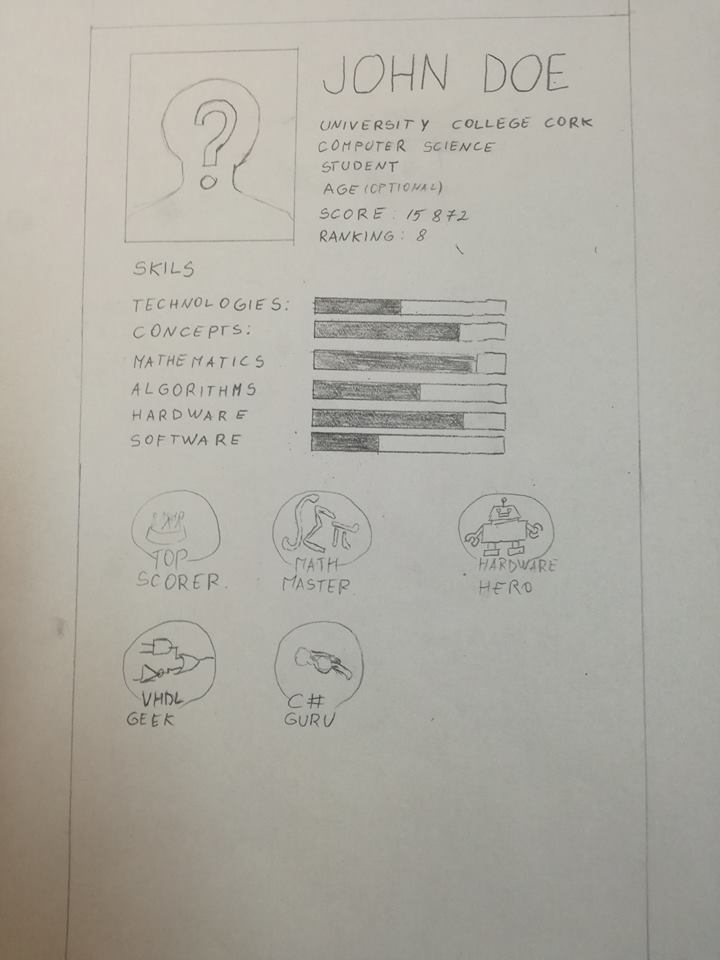 ?
JOHN DOE
UNIVERSITY COLLEGE CORK
COMPUTER SCIENCE
STUDENT
AGE (OPTIONAL)
SCORE: 15 872
RANKING: 8
SKILS
TECHNOLOGIES:
CONCEPTS:
MATHEMATICS
ALGORITHMS
HARDWARE
SOFTWARE
TOP
SCORER.
MATH
MASTER
HARDWARE
HERO
VHDL
GEEK
C#
GURU